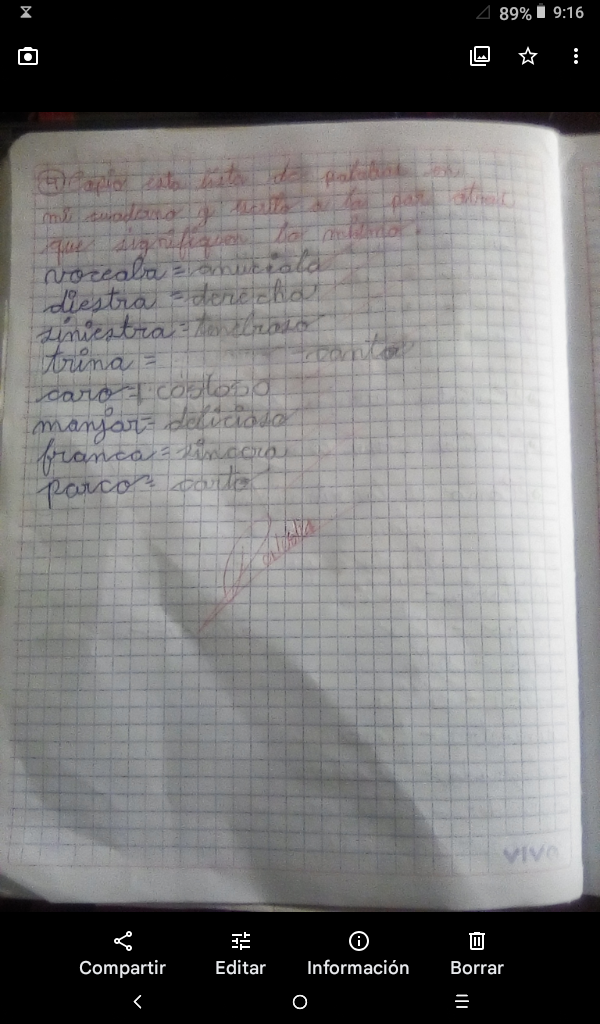 89% 9:16
④ Copio esta lista de palabras en
mi cuaderno y escribo a la par otras
que signifiquen lo mismo.
voceaba = anuciaba
diestra = derecha
siniestra = tenebroso
trina = canta
caro = costoso
manjar = delicioso
franca = sincera
parco = corto
vivo
Compartir Editar Información Borrar